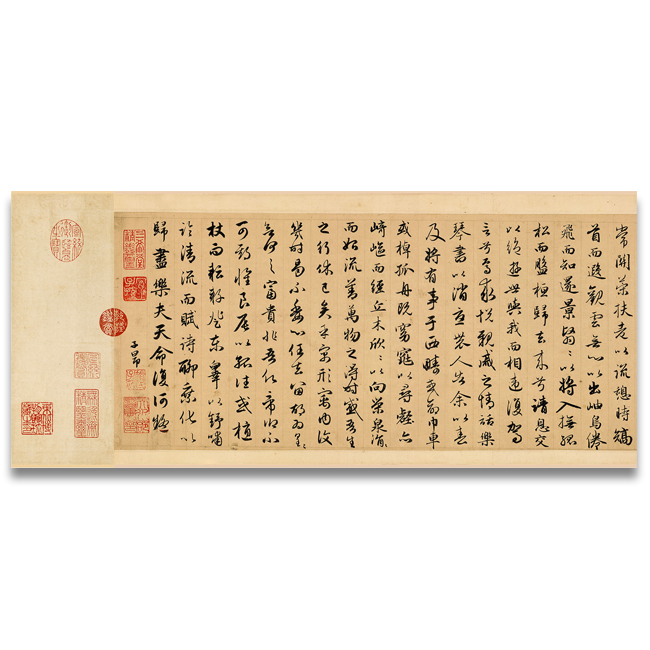 常關策扶老以流憩時矯
首而遐觀雲無心以出岫鳥倦
飛而知還景翳〻以將入撫孤
松而盤桓歸去來兮請息交
以絕遊世與我而相違復駕
言兮焉求悅親戚之情話樂
琴書以消憂農人告余以春
及將有事于西疇或命巾車
或棹孤舟既窈窕以尋壑亦
崎嶇而經丘木欣〻以向榮泉涓
而始流善萬物之得時感吾生
之行休已矣乎寓形宇內復
幾時曷不委心任去留胡為
何之富貴非吾願帝鄉不
可期懷良辰以孤往或植
杖而耘耔登東皋以舒嘯
臨清流而賦詩聊乘化以
歸盡樂夫天命復何疑
子昂